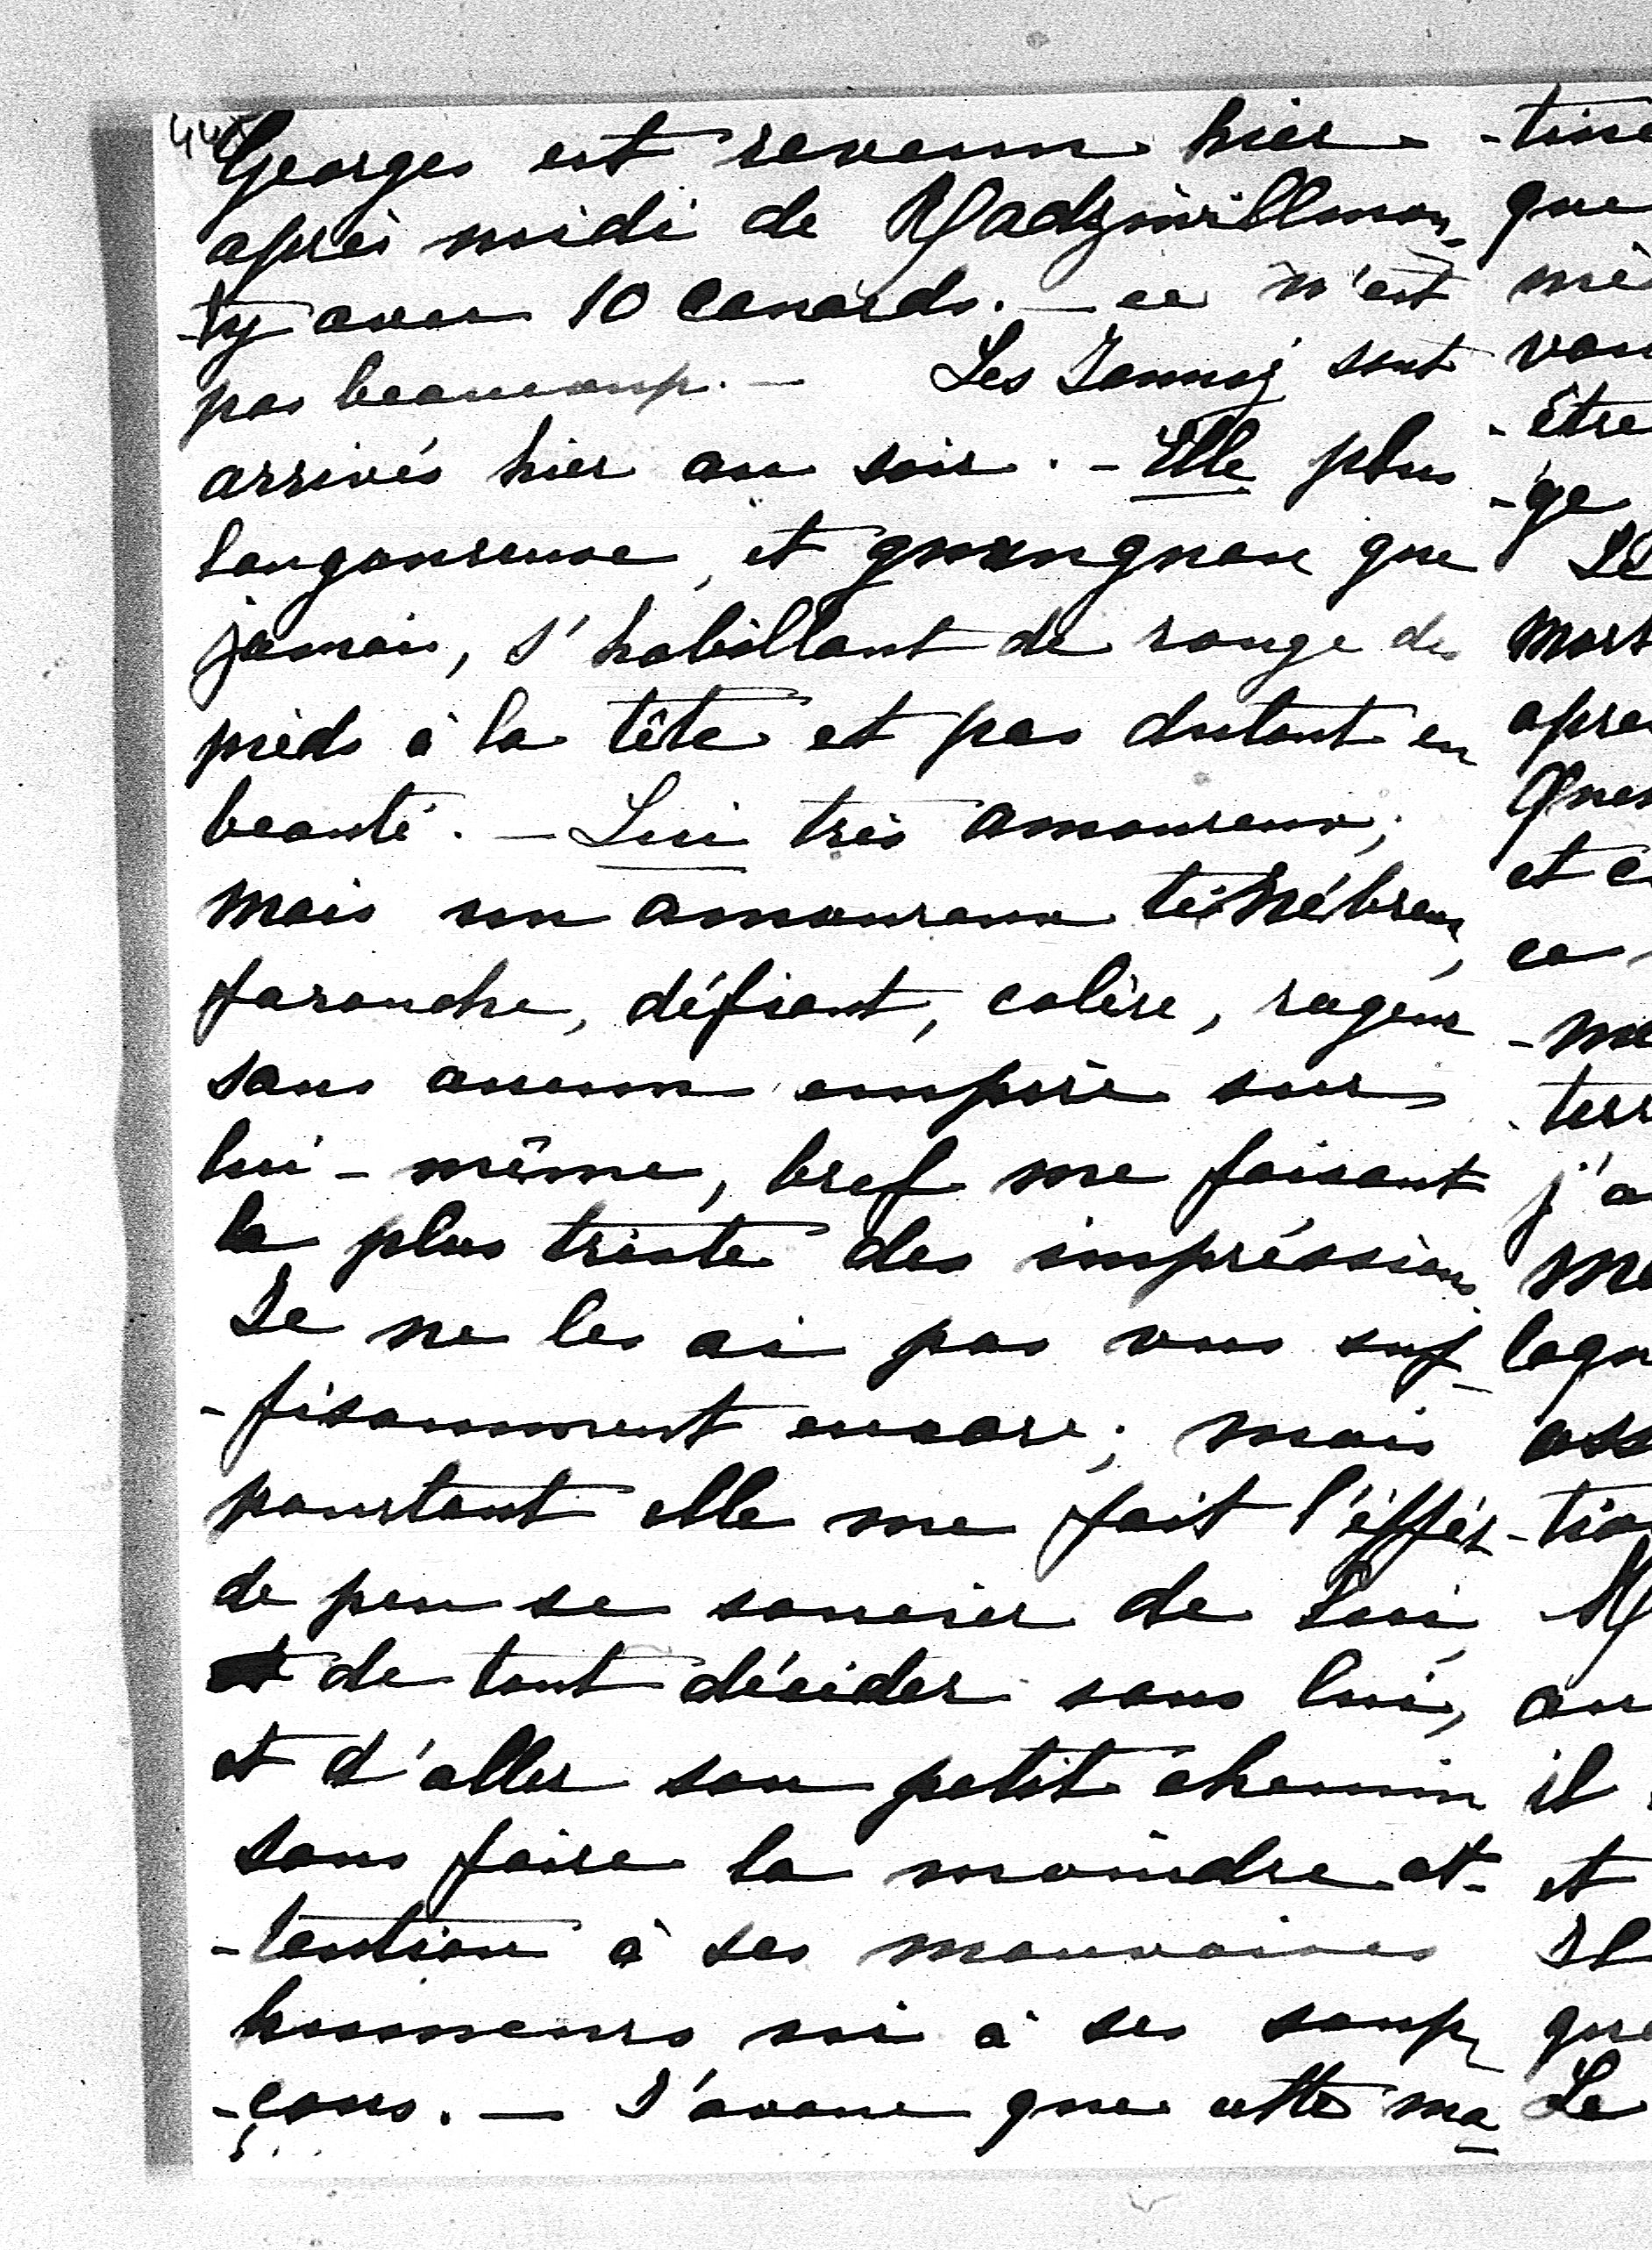 Georges est revenu hier
après midi de Radziwillmon-
-ty avec 10 canards. — ce n'est
pas beaucoup. — Les sont
arrivés hier au soir. — Elle plus
langoureuse, et gnangnan que
jamais, s'habillant de rouge des
pieds à la tête et pas dutout en
beauté. — Lui très amoureux;
mais un amoureux ténébreux,
farouche, défiant, colère, rageur
sans aucun empire sur
lui-même, bref me faisant
la plus triste des impréssions.
Je ne les ai pas vus suf-
-fisamment encore; mais
pourtant elle me fait l'éffét
de peu se soucier de Lui
de tout décider sans lui,
et d'aller son petit chemin
sans faire la moindre at-
-tention à ses mauvaises
humeurs ni à ses soup-
-çons. — J'avoue que cette ma-
que
-être
-ge
mort
et
ce
j'a
il
et
Il
que
Le